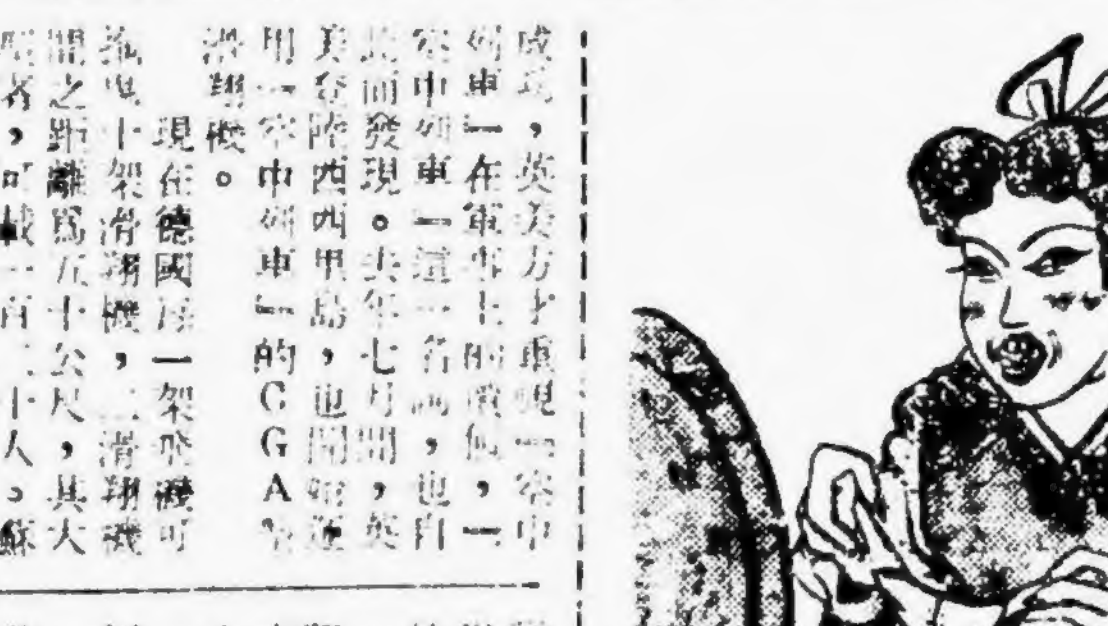 成功,英美方才重視「空中
列車」在軍事上的價值,「
空中列車」這一名詞,也自
此而發現。去年七月間,英
美登陸西西里島,也開始運
用「空中列車」的CGA
滑翔機。
現在德國每一架飛機可
拖曳十架滑翔機,二滑翔機
間之距離爲五十公尺,其大
者,可載一百二十人。蘇